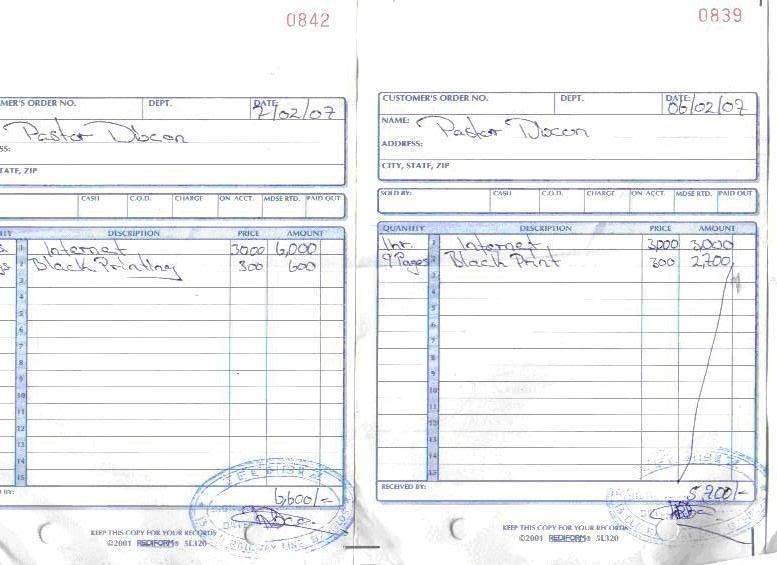 0842
MER'S ORDER NO. DEPT. DATE: 7/02/07
Pastor Dixon
SS:
TATE, ZIP
CASH C.O.D. CHARGE ON ACCT. MDSE RTD. PAID OUT
ITY DESCRIPTION PRICE AMOUNT
s. 1 Internet 3000 6,000
gs 2 Black Printing 300 600
3
4
5
6
7
8
9
10
11
12
13
14
15
D BY: 6,600/=
KEEP THIS COPY FOR YOUR RECORDS
©2001 REDIFORM® 5L320
0839
CUSTOMER'S ORDER NO. DEPT. DATE: 06/02/07
NAME: Pastor Dixon
ADDRESS:
CITY, STATE, ZIP
SOLD BY: CASH C.O.D. CHARGE ON ACCT. MDSE RTD. PAID OUT
QUANTITY DESCRIPTION PRICE AMOUNT
1hr. 1 Internet 3,000 3,000
9 Pages 2 Black Print 300 2,700
3
4
5
6
7
8
9
10
11
12
13
14
15
RECEIVED BY: 5,700/=
KEEP THIS COPY FOR YOUR RECORDS
©2001 REDIFORM® 5L320